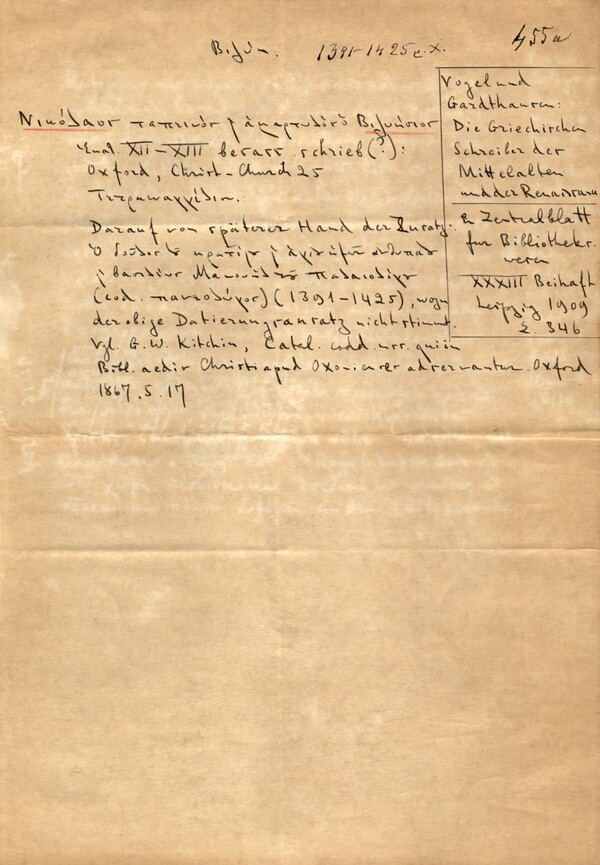 Βιζύη. 1391-1425 μ.χ.
455α
Νικόλαος ταπεινός κ ἁμαρτωλός ὁ Βιζυήσιος
End. XII-XIII besass schrieb(?):
Oxford, Christ-Church 25
Τετραυαγγέλιον.
Darauf von späterer Hand der Zusatz:
ὁ δοῦλος τοῦ κρατίου κ ἁγίου ἡμῶν
κ βασιλέως Μανουὴλ τοῦ Παλαιολόγου
(cod. παναολόγος) (1391-1425), wozu
der obige Datierungsansatz nicht stimmt.
Vgl. G.W. Kitchin, Catal. codd. mss. qui in
Bibl. aedis Christi apud Oxonienses adservantur. Oxford
1867. S. 17
Vogel und
Gardthausen:
Die Griechischen
Schreiber des
Mittelalters
und der Renaissance
Zentralblatt
für Bibliotheks.
wesen
XXXIII Beiheft
Leipzig 1909
Σ. 346